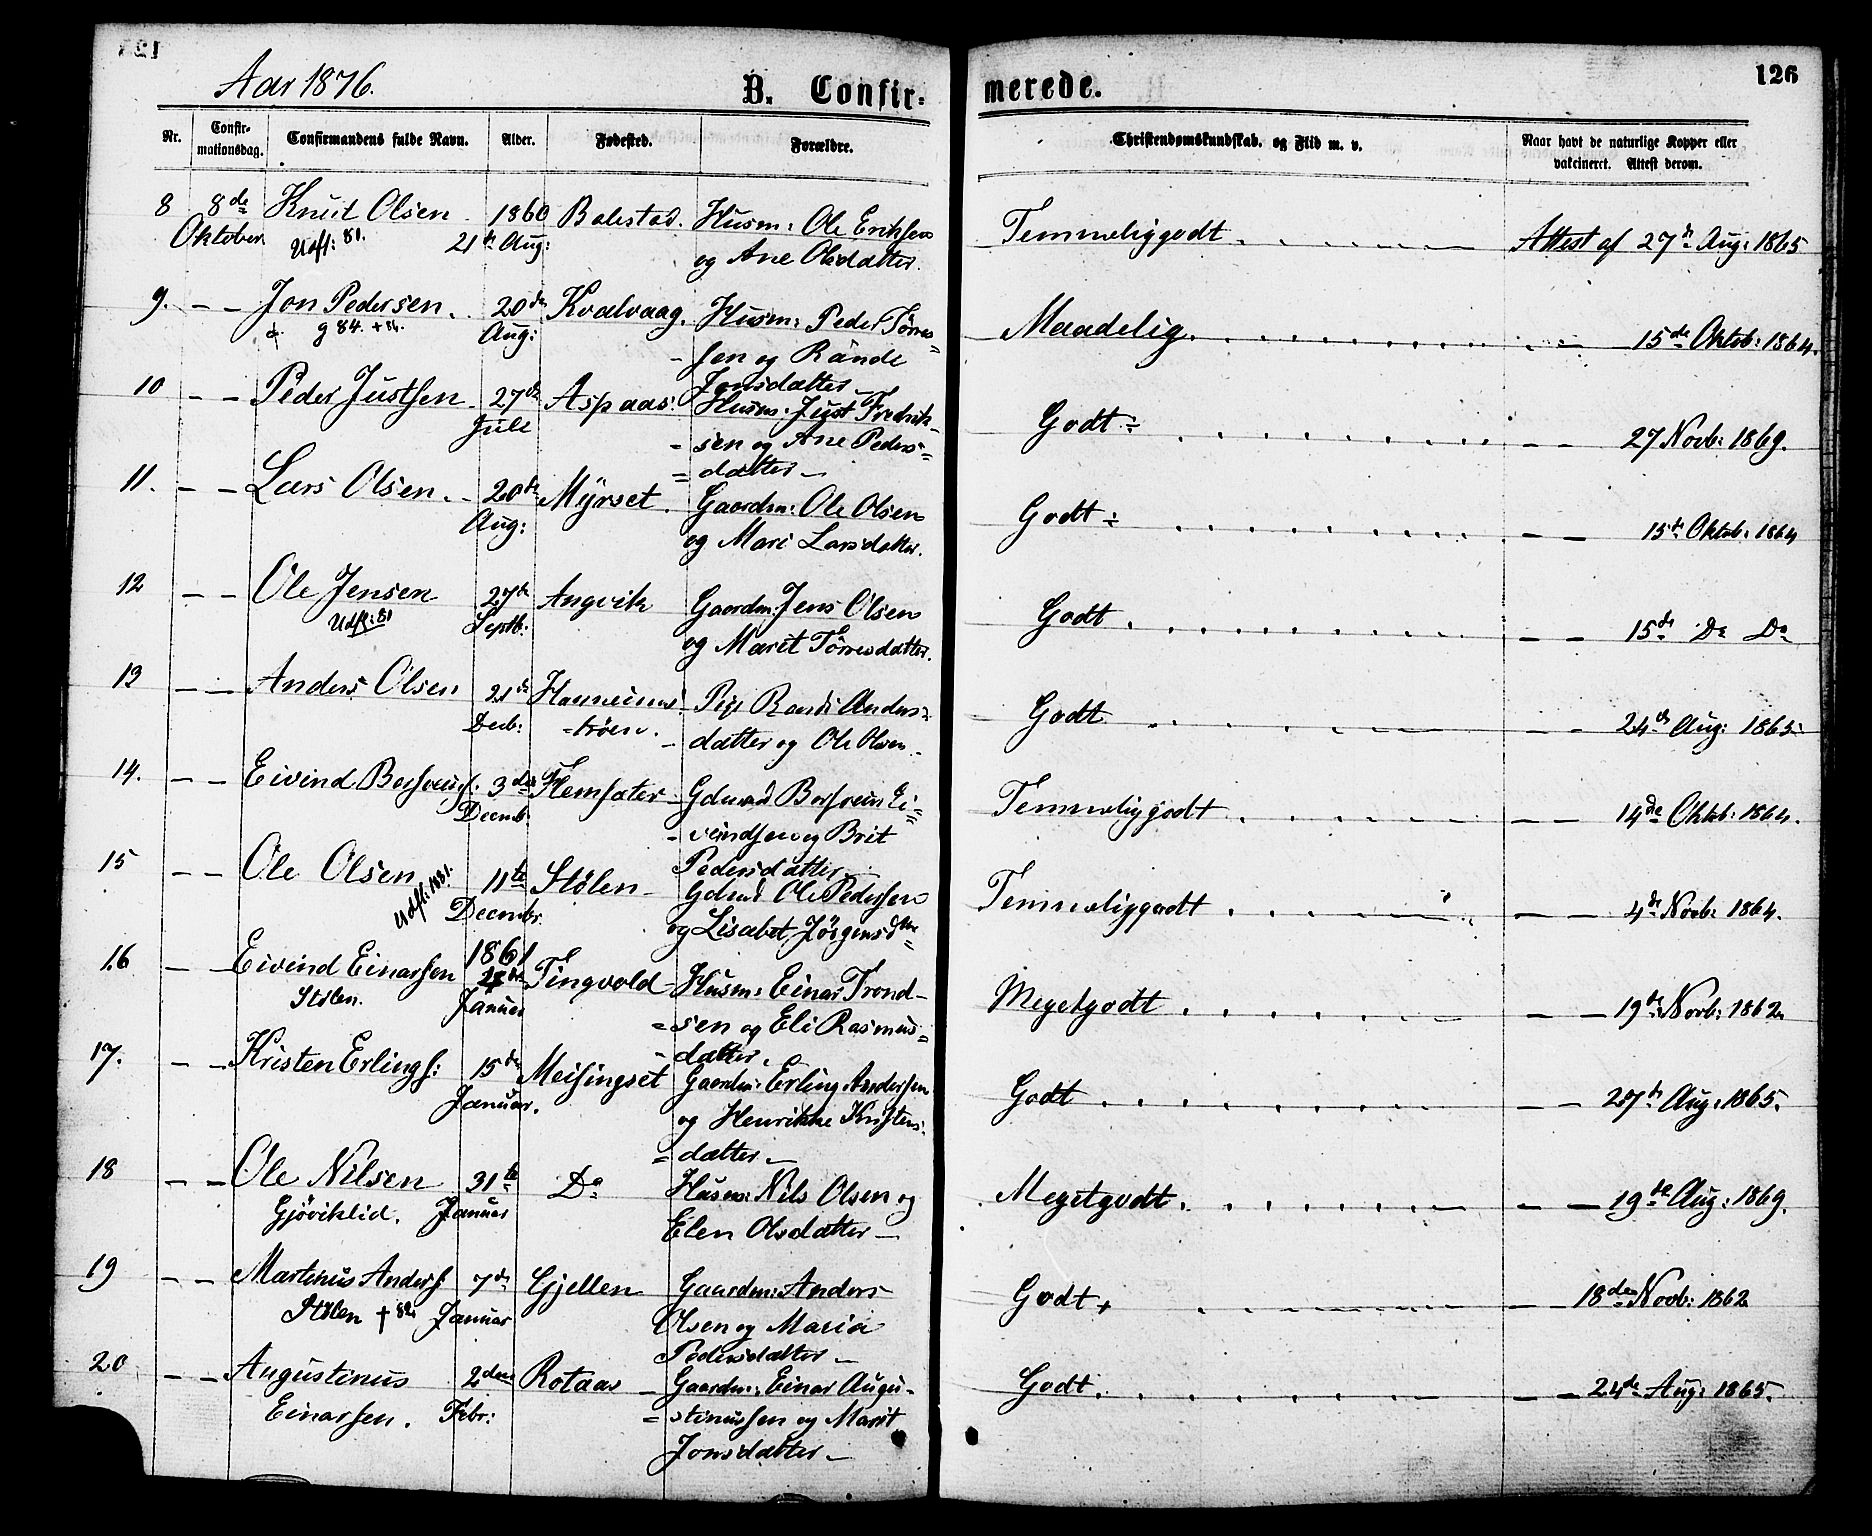 Aar 1876.
B. Confir=
merede.
126
Nr.
Confir-
mationsdag.
Confirmandens fulde Navn.
Alder.
Fødested.
Forældre.
Christendomskundskab, og Flid m. v.
Naar havt de naturlige Kopper eller
vakcineret. Attest derom.
8 8de Knut Olsen 1860 Bolestad. Husm: Ole Eriksen Temmeliggodt Attest af 27de Aug: 1865
Oktober Udfl: 81. 21de Aug: og Ane Olsdatter.
9. – – Jon Pedersen. 20de Kvalvaag. Husm: Peder Tørres= Maadelig. – 15de Oktob: 1864.
g 84. + 84. Aug: sen og Rande
Jonsdatter
10 – – Peder Justsen 27de Aspaas. Husm: Just Fredrik- Godt÷ – – 27 Novb: 1869.
Juli sen og Ane Peders=
= datter –
11. – – Lars Olsen. 20de Myrset. Gaardm: Ole Olsen Godt÷ – – 15de Oktob: 1864
Aug: og Mari Larsdatter.
12 – – Ole Jensen 27de Angvik Gaardm: Jens Olsen Godt – – 15de Do Do
Udfl: 81 Septb. og Marit Tørresdatter.
13 – – Anders Olsen 21de Pige Randi Anders= Godt – – 24de Aug: 1865
Decb: -trøen. datter og Ole Olsen
14. – – Eivind 3de Flemsæter Gdmd Ei= Temmeliggodt – – 14de Oktob: 1864.
Decemb. -vindsen og Brit
Pedersdatter
15 – – Ole Olsen 11te Stølen Gdmd Ole Pedersen Temmeliggodt – – 4de Novb: 1864.
Udfl: 1881. Decembr. og Lisabet Jørgensdtr
16 – – Eivind Einarsen 1861 4de Tingvold Husm: Einar Trond- Megetgodt – – 19de Novb: 1862
Stølen. Januar =sen og Eli Rasmus=
- datter.
17. – – Kristen Erlings: 15de Meisingset Gaardm: Erling Andersen Godt – – 27de Aug: 1865.
Januar. og Henrikke Kristens:
= datter –
18 – – Ole Nilsen 31te Do Husm: Nils Olsen og Megetgodt. – – 19de Aug: 1869.
Gjøviklid. Januar Elen Olsdatter –
19 – – Martinus Anders: 7de Gjellen Gaardm: Anders Godt + – 18de Novb: 1862
Stølen † 82 Januar Olsen og Maria
Pedersdatter –
20 – – Augustinus 2den Rotaas – Gaardm: Einar Augu- Godt. – – 24de Aug: 1865.
Einarsen. Febr: = stinussen og Marit
Jonsdatter –